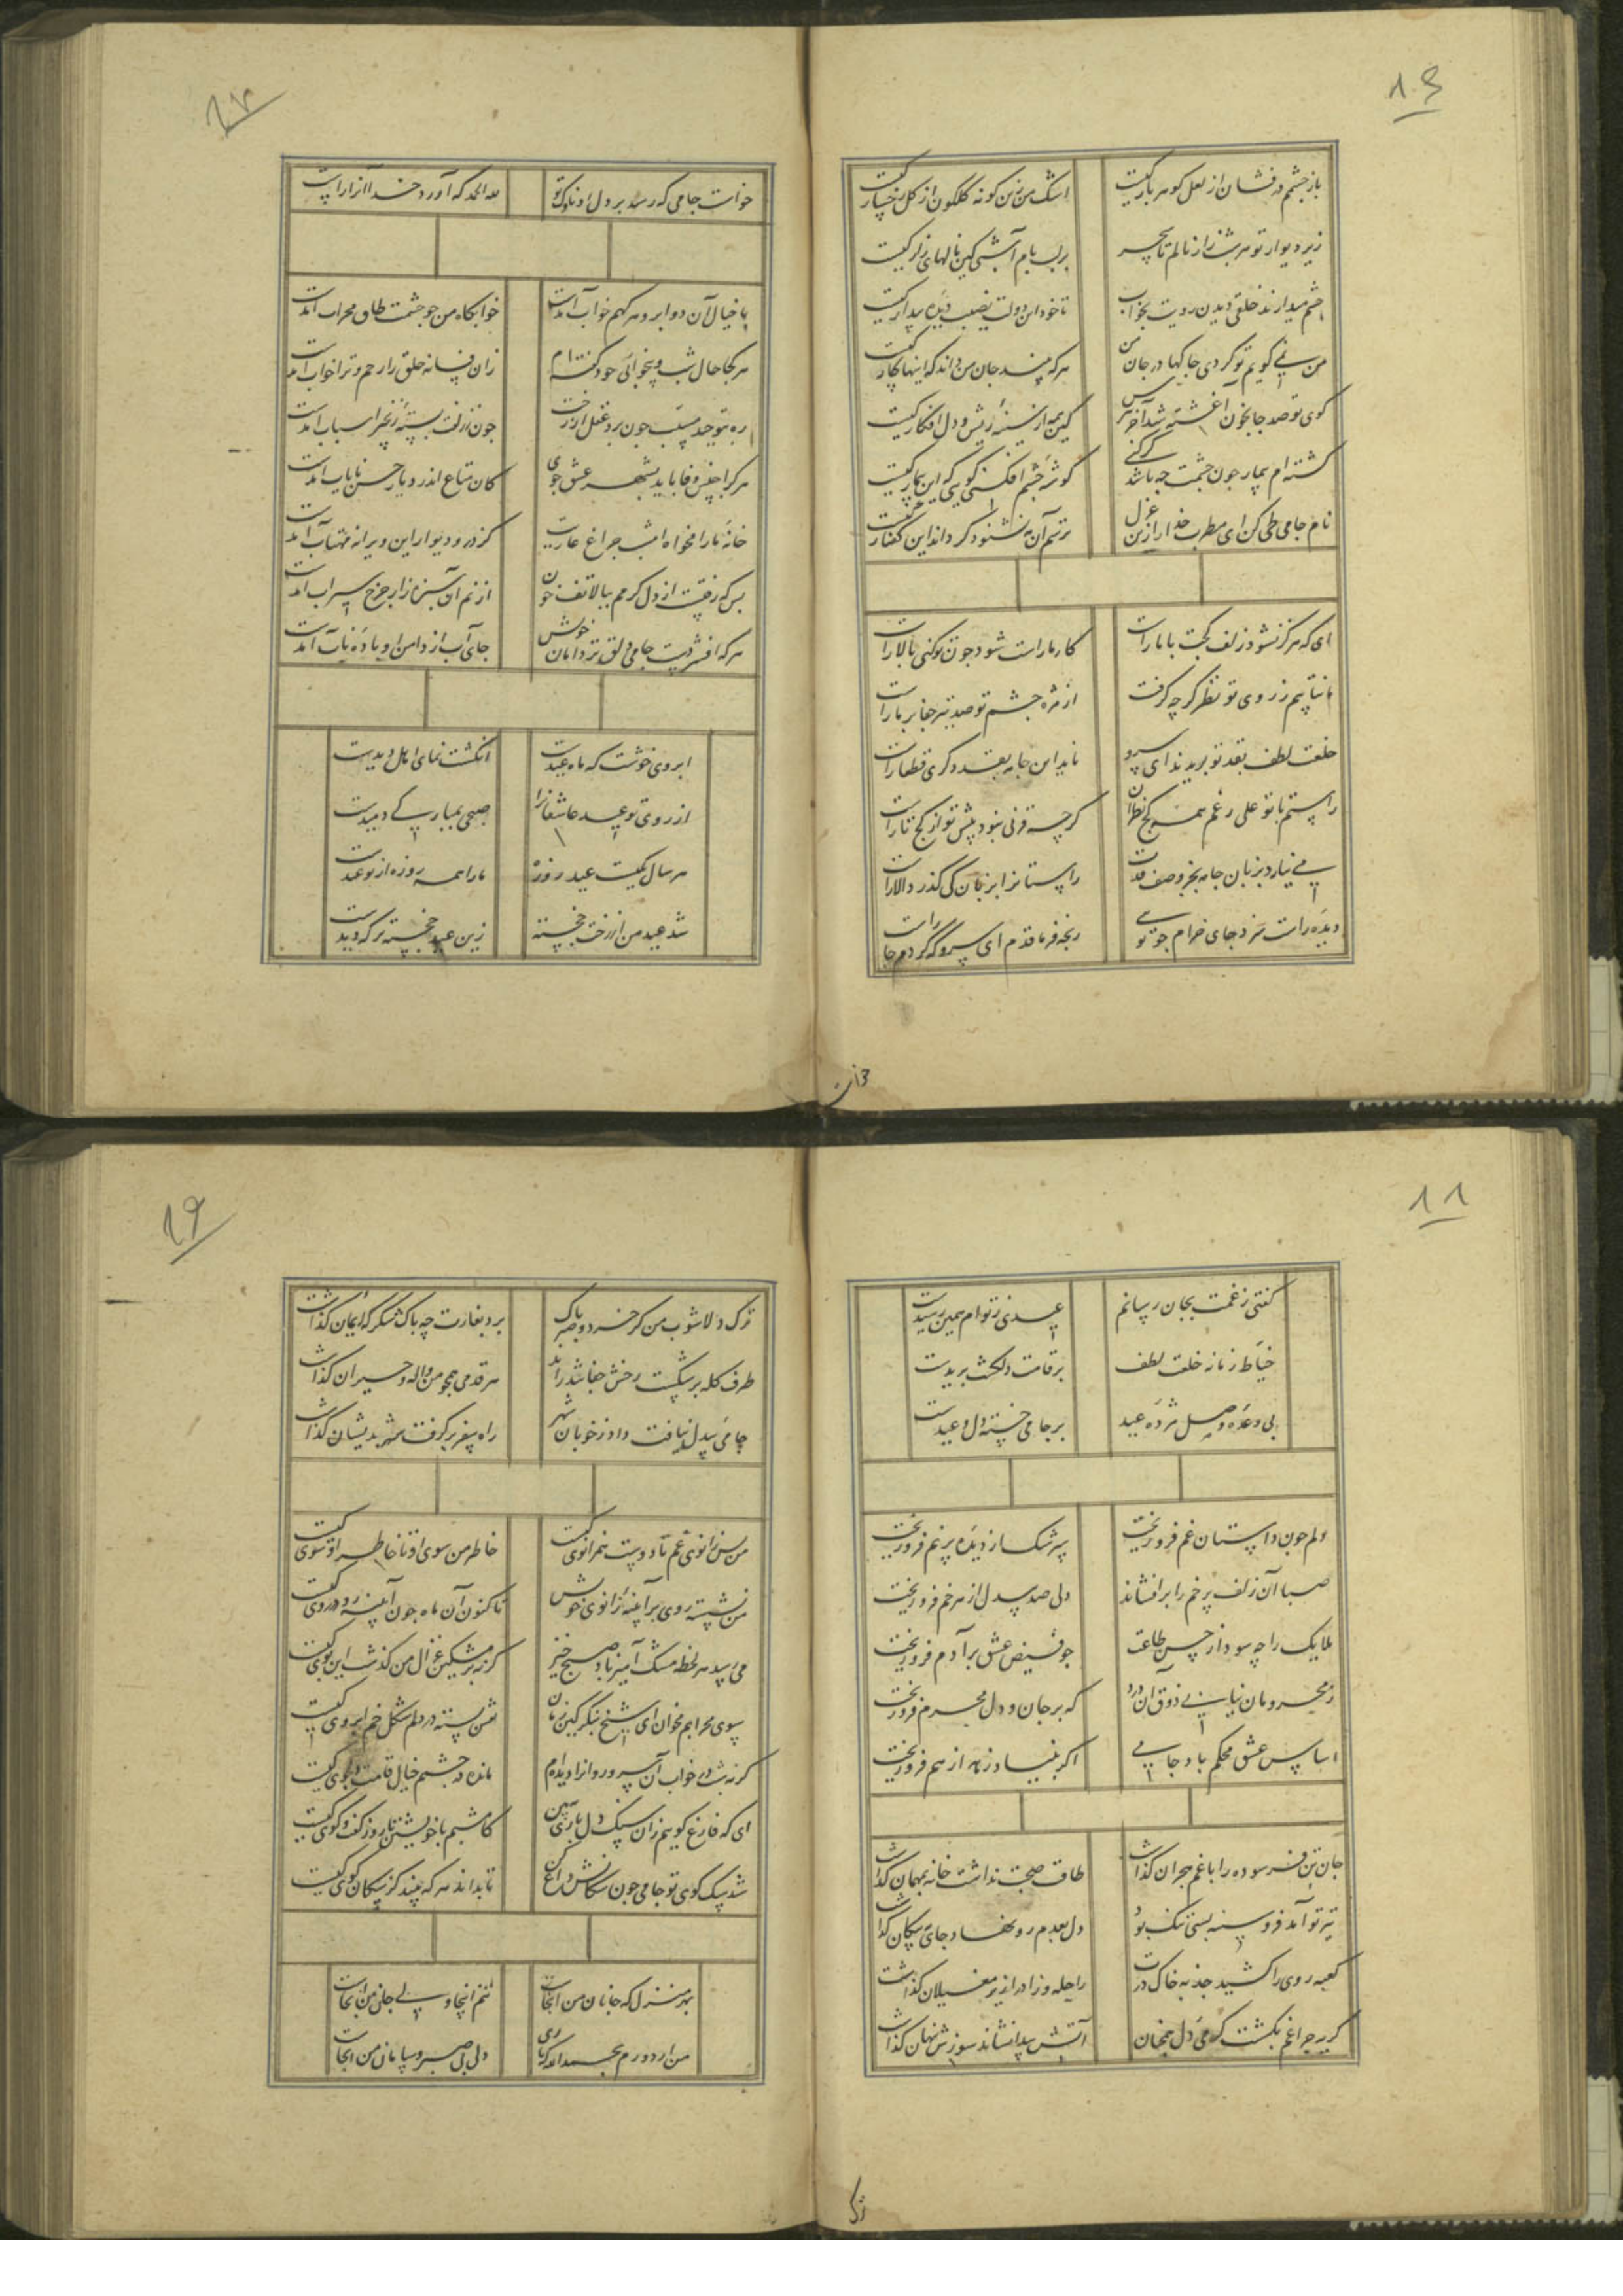 بازچشم درفشان از لعل کوهربار کیست اشک من زین کونه کلکون از کل رخسار کیست
زیر دیوار تو هر شب زار نالم تا سحر بر لب بام آ شبی کین نالهای زار کیست
چشم میدارند خلقی دیدن رویت بخواب تا خود این دولت نصیب دیده بیدار کیست
من نمی کویم تو کردی جا کها در جان من هر که بیند جان من داند که اینها کار کیست
کوی تو صد جا بخون آغشته شد آخر کین همه از سینه ریش و دل افکار کیست
کشته ام بیمار چون چشمت چه باشد کر کنی کوشه چشم افکنی کویی که این بیمار کیست
نام جامی طی کن ای مطرب خدا را زین غزل ترسم آن مه نشنود کر داند این کفتار کیست
ای که هرکز نشود زلف کجت با ما راست کار ما راست شود چون تو کنی بالا راست
ما نتابیم ز روی تو نظر کر چه کرفت از مژه چشم تو صد تیر جفا بر ما راست
خلعت لطف بقد تو بریدند ای سرو ناید این جامه بقد دکری قطعا راست
راستم با تو علی رغم همه کج نظران کر چه قرنی نبود پیش تو از کج تا راست
می نیارد بزبان جامه بجز وصف قدت راستا نرا بزبان کی کذرد الا راست
دیده راست سزد جای خرام چو تویی رنجه فرما قدم ای سرو که کردم جا راست
خواست جامی که رسد بر دل او ناوک تو لله الحمد که آورد خدا آنرا راست
با خیال آن دو ابرو هر کهم خواب آمدست خوابکاه من چو چشمت طاق محراب آمدست
هر کجا حال شب و بیخوابی خود کفته ام زان فسانه خلق را رحم و ترا خواب آمدست
ره بتوحید مسبب چون برد عقل از رخت چون ز زلفت بسته زنجیر اسباب آمدست
هر کرا جنس وفا باید بشهر عشق جوی کان متاع اندر دیار حسن نایاب آمدست
خانه ما را مخواه امشب چراغ عاریت کز در و دیوار این ویرانه مهتاب آمدست
بس که رفتست از دل کرمم ببالا تف خون از نم آن سبزه زار چرخ سیراب آمدست
هر که افشردست جامی دلق تر دامان خویش جای آب از دامن او باده ناب آمدست
ابروی خوشت که ماه عیدست انکشت نمای اهل دیدست
از روی تو عید عاشقانرا صبحی بمبارکی دمیدست
هر سال یکیست عید روزه ما را همه روزه از تو عیدست
شد عید من از رخت خجسته زین عید خجسته تر که دیدست
خان
کفتی ز غمت بجان رسانم عیدی ز توام همین رسیدست
خیاط زمانه خلعت لطف بر قامت دلکشت بریدست
بی وعده وصل مژده عید بر جامی خسته دل وعیدست
دلم چون داستان غم فرو ریخت سرشک از دیده پر نم فرو ریخت
صبا آن زلف پر خم را برافشاند دلی صد بیدل از هر خم فرو ریخت
ملایک را چه سود از حسن طاعت چو فیض عشق بر آدم فرو ریخت
ز محرومان نیابی ذوق آن درد که بر جان و دل محرم فرو ریخت
اساس عشق محکم باد جامی اکر بنیاد زهد از هم فرو ریخت
جان تن فرسوده را با غم هجران کذاشت طاقت صحبت نداشت خانه بمهمان کذاشت
تیر تو آمد فرو سینه بسی تنک بود دل بعدم رو نهاد جای بپیکان کذاشت
کعبه روی را کشید جذبه خاک درت راحله و زاد را زیر مغیلان کذاشت
کریه چراغم بکشت کرمی دل همچنان آتش پیدا نشاند سوزش پنهان کذاشت
ترک
ترک دلاشوب من کز خرد و صبر پاک برد بغارت چه باک شکر که ایمان کذاشت
طرف کله بر شکست رخش جفا تند راند هر قدمی همچو من واله و حیران کذاشت
جامی بیدل نیافت داد ز خوبان شهر راه سفر بر کرفت شهر بدیشان کذاشت
من بزانوی غم تا دوست همزانوی کیست خاطر من سوی او تا خاطر او سوی کیست
من نشسته روی بر آیینه زانوی خویش تا کنون آن ماه چون آیینه رو در روی کیست
می رسد هر لحظه مشک آمیز باد صبح خیز کر نه بر مشکین غزال من کذشت این بوی کیست
سوی محرابم مخوان ای شیخ بنکر کین زمان نقش بسته در دلم شکل خم ابروی کیست
کر نه شب در خواب آن سرو روانرا دیده ام مانده در چشمم خیال قامت دلجوی کیست
ای که فارغ کوییم زان سنک دل باری ببین کامشبم با خویشتن تا روز کفت و کوی کیست
شد سک کوی تو جامی چون سکانش داغ کن تا بداند هر که بیند کز سکان کوی کیست
بهر منزل که جانان من آنجاست تنم اینجا ولی جان من آنجاست
من ار دورم بحمدالله که باری دلی بی صبر و سامان من آنجاست